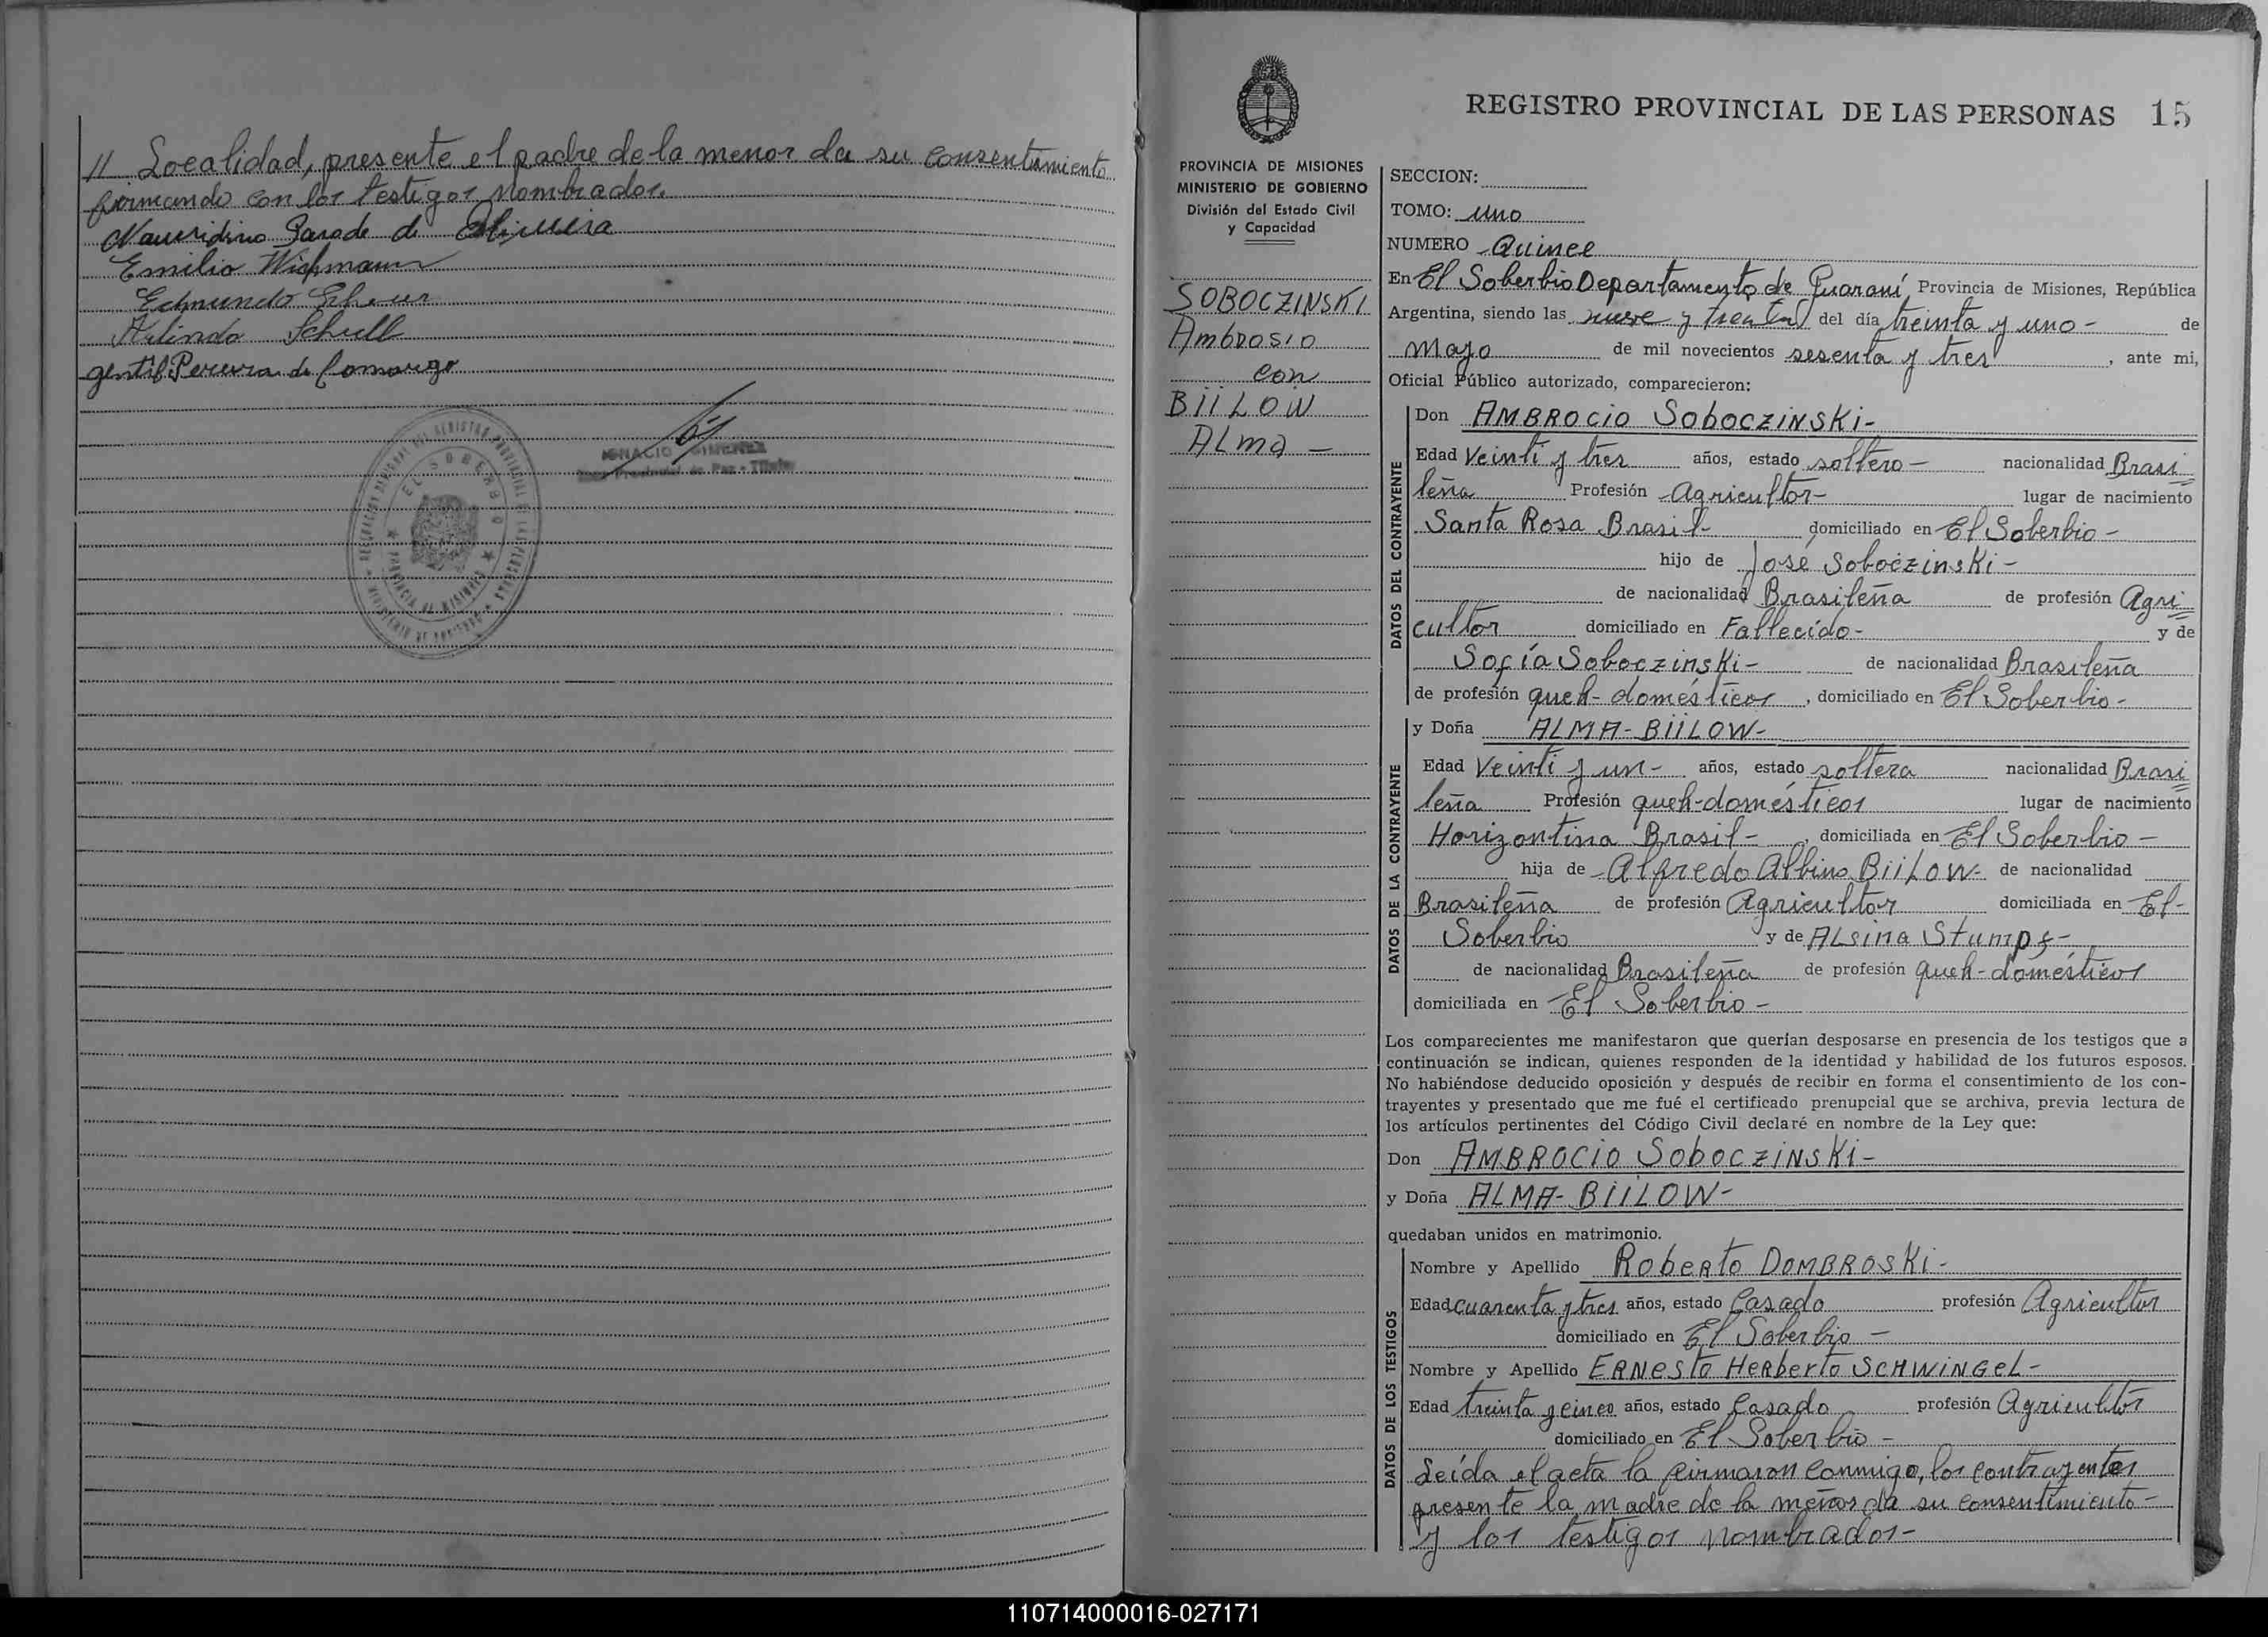 // Localidad, presente el padre de la menor da su consentimiento
firmando con los testigos nombrados.
de Oliveira
Emilio Wichmann
Edmundo
Arlindo Schull
gentil Pereira de Camargo
IGNACIO GIMENEZ
Juez Provincial de Paz - Titular
EL SOBERBIO
PROVINCIA DE MISIONES
REGISTRO PROVINCIAL DE LAS PERSONAS 15
PROVINCIA DE MISIONES
MINISTERIO DE GOBIERNO
División del Estado Civil
y Capacidad
SOBOCZINSKI
Ambrosio
con
BIILOW
ALMA -
SECCION:
TOMO: uno
NUMERO - Quince
En El Soberbio Departamento de Guaraní Provincia de Misiones, República
Argentina, siendo las nueve y treinta del día treinta y uno - de
mayo de mil novecientos sesenta y tres, ante mi,
Oficial Público autorizado, comparecieron:
DATOS DEL CONTRAYENTE
Don AMBROCIO SOBOCZINSKI-
Edad Veinti y tres años, estado soltero - nacionalidad Brasi
leña Profesión - Agricultor - lugar de nacimiento
Santa Rosa Brasil - domiciliado en El Soberbio -
hijo de José Soboczinski -
de nacionalidad Brasileña de profesión Agri
cultor domiciliado en Fallecido - y de
Sofía Soboczinski - de nacionalidad Brasileña
de profesión queh- domésticos, domiciliado en El Soberbio -
DATOS DE LA CONTRAYENTE
y Doña ALMA - BIILOW -
Edad Veinti y un - años, estado soltera nacionalidad Brasi
leña Profesión queh-domésticos lugar de nacimiento
Horizontina Brasil -, domiciliada en El Soberbio -
hija de - Alfredo Albino BIILOW - de nacionalidad
Brasileña de profesión Agricultor domiciliada en El -
Soberbio y de ALSINA Stumpf -
de nacionalidad Brasileña de profesión queh - domésticos
domiciliada en El Soberbio -
Los comparecientes me manifestaron que querían desposarse en presencia de los testigos que a
continuación se indican, quienes responden de la identidad y habilidad de los futuros esposos.
No habiéndose deducido oposición y después de recibir en forma el consentimiento de los con-
trayentes y presentado que me fué el certificado prenupcial que se archiva, previa lectura de
los artículos pertinentes del Código Civil declaré en nombre de la Ley que:
Don AMBROCIO SOBOCZINSKI -
y Doña ALMA - BIILOW -
quedaban unidos en matrimonio.
DATOS DE LOS TESTIGOS
Nombre y Apellido Roberto DOMBROSKI -
Edad cuarenta y tres años, estado Casado profesión Agricultor
domiciliado en El Soberbio -
Nombre y Apellido ERNESTO HERBERTO SCHWINGEL -
Edad treinta y cinco años, estado Casado profesión Agricultor
domiciliado en El Soberbio -
Leída el acta la firmaron conmigo, los contrayentes
presente la madre de la menor da su consentimiento -
y los testigos nombrados -
110714000016-027171